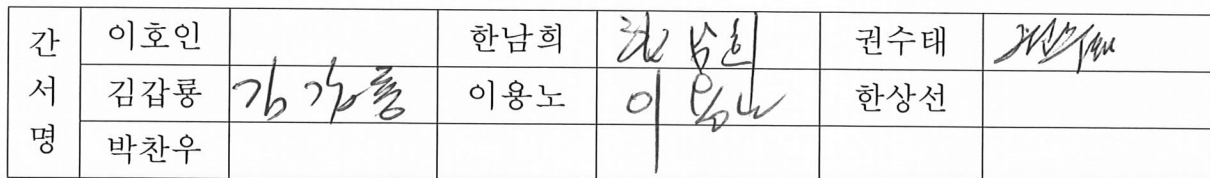 간 이호인 한남희 한남희 권수태 권수태
서 김갑룡 김갑룡 이용노 이용노 한상선
명 박찬우